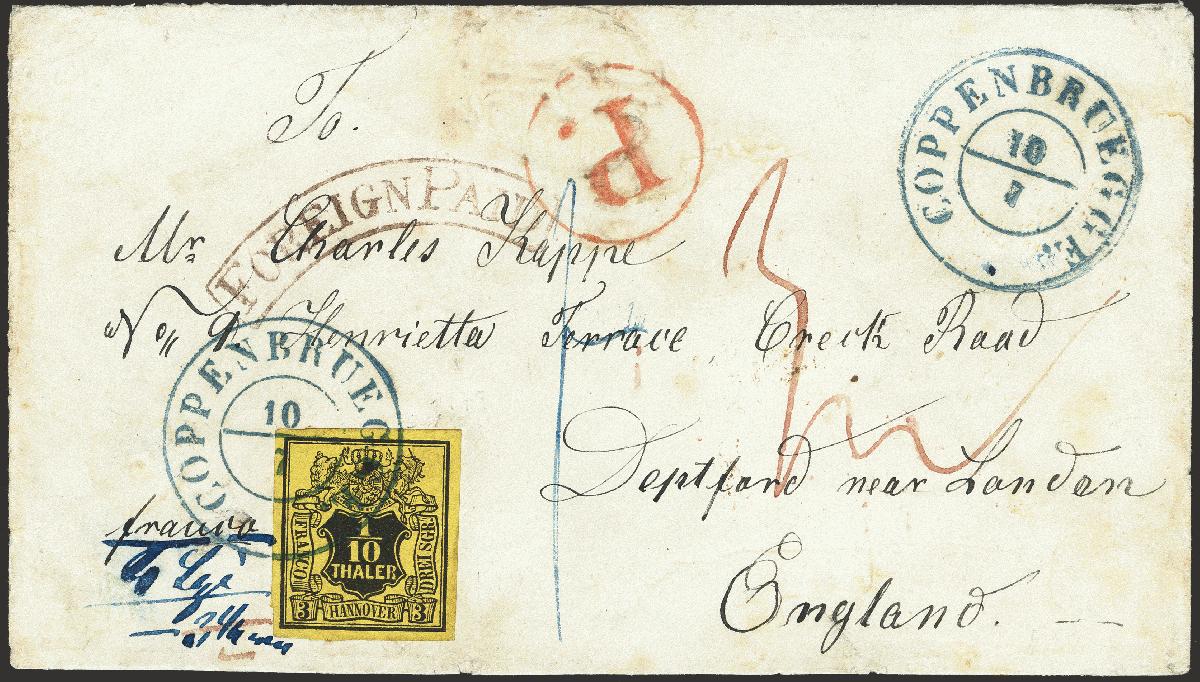 To.
P.
COPPENBRUEGGE
10
7
FOREIGN PAID
Mr Charles Kappe
No 9 Henrietta Terrace, Creek Road
Deptford near London
England.
COPPENBRUEGGE
10
7
franco
FRANCO
1/10
THALER
DREI SGR
3 HANNOVER 3